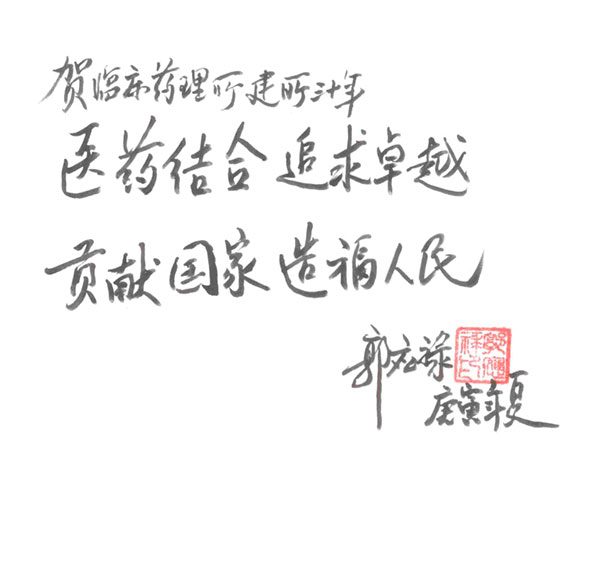 贺临床药理所建所三十年
医药结合 追求卓越
贡献国家 造福人民
郭应禄
郭应禄印
庚寅年夏